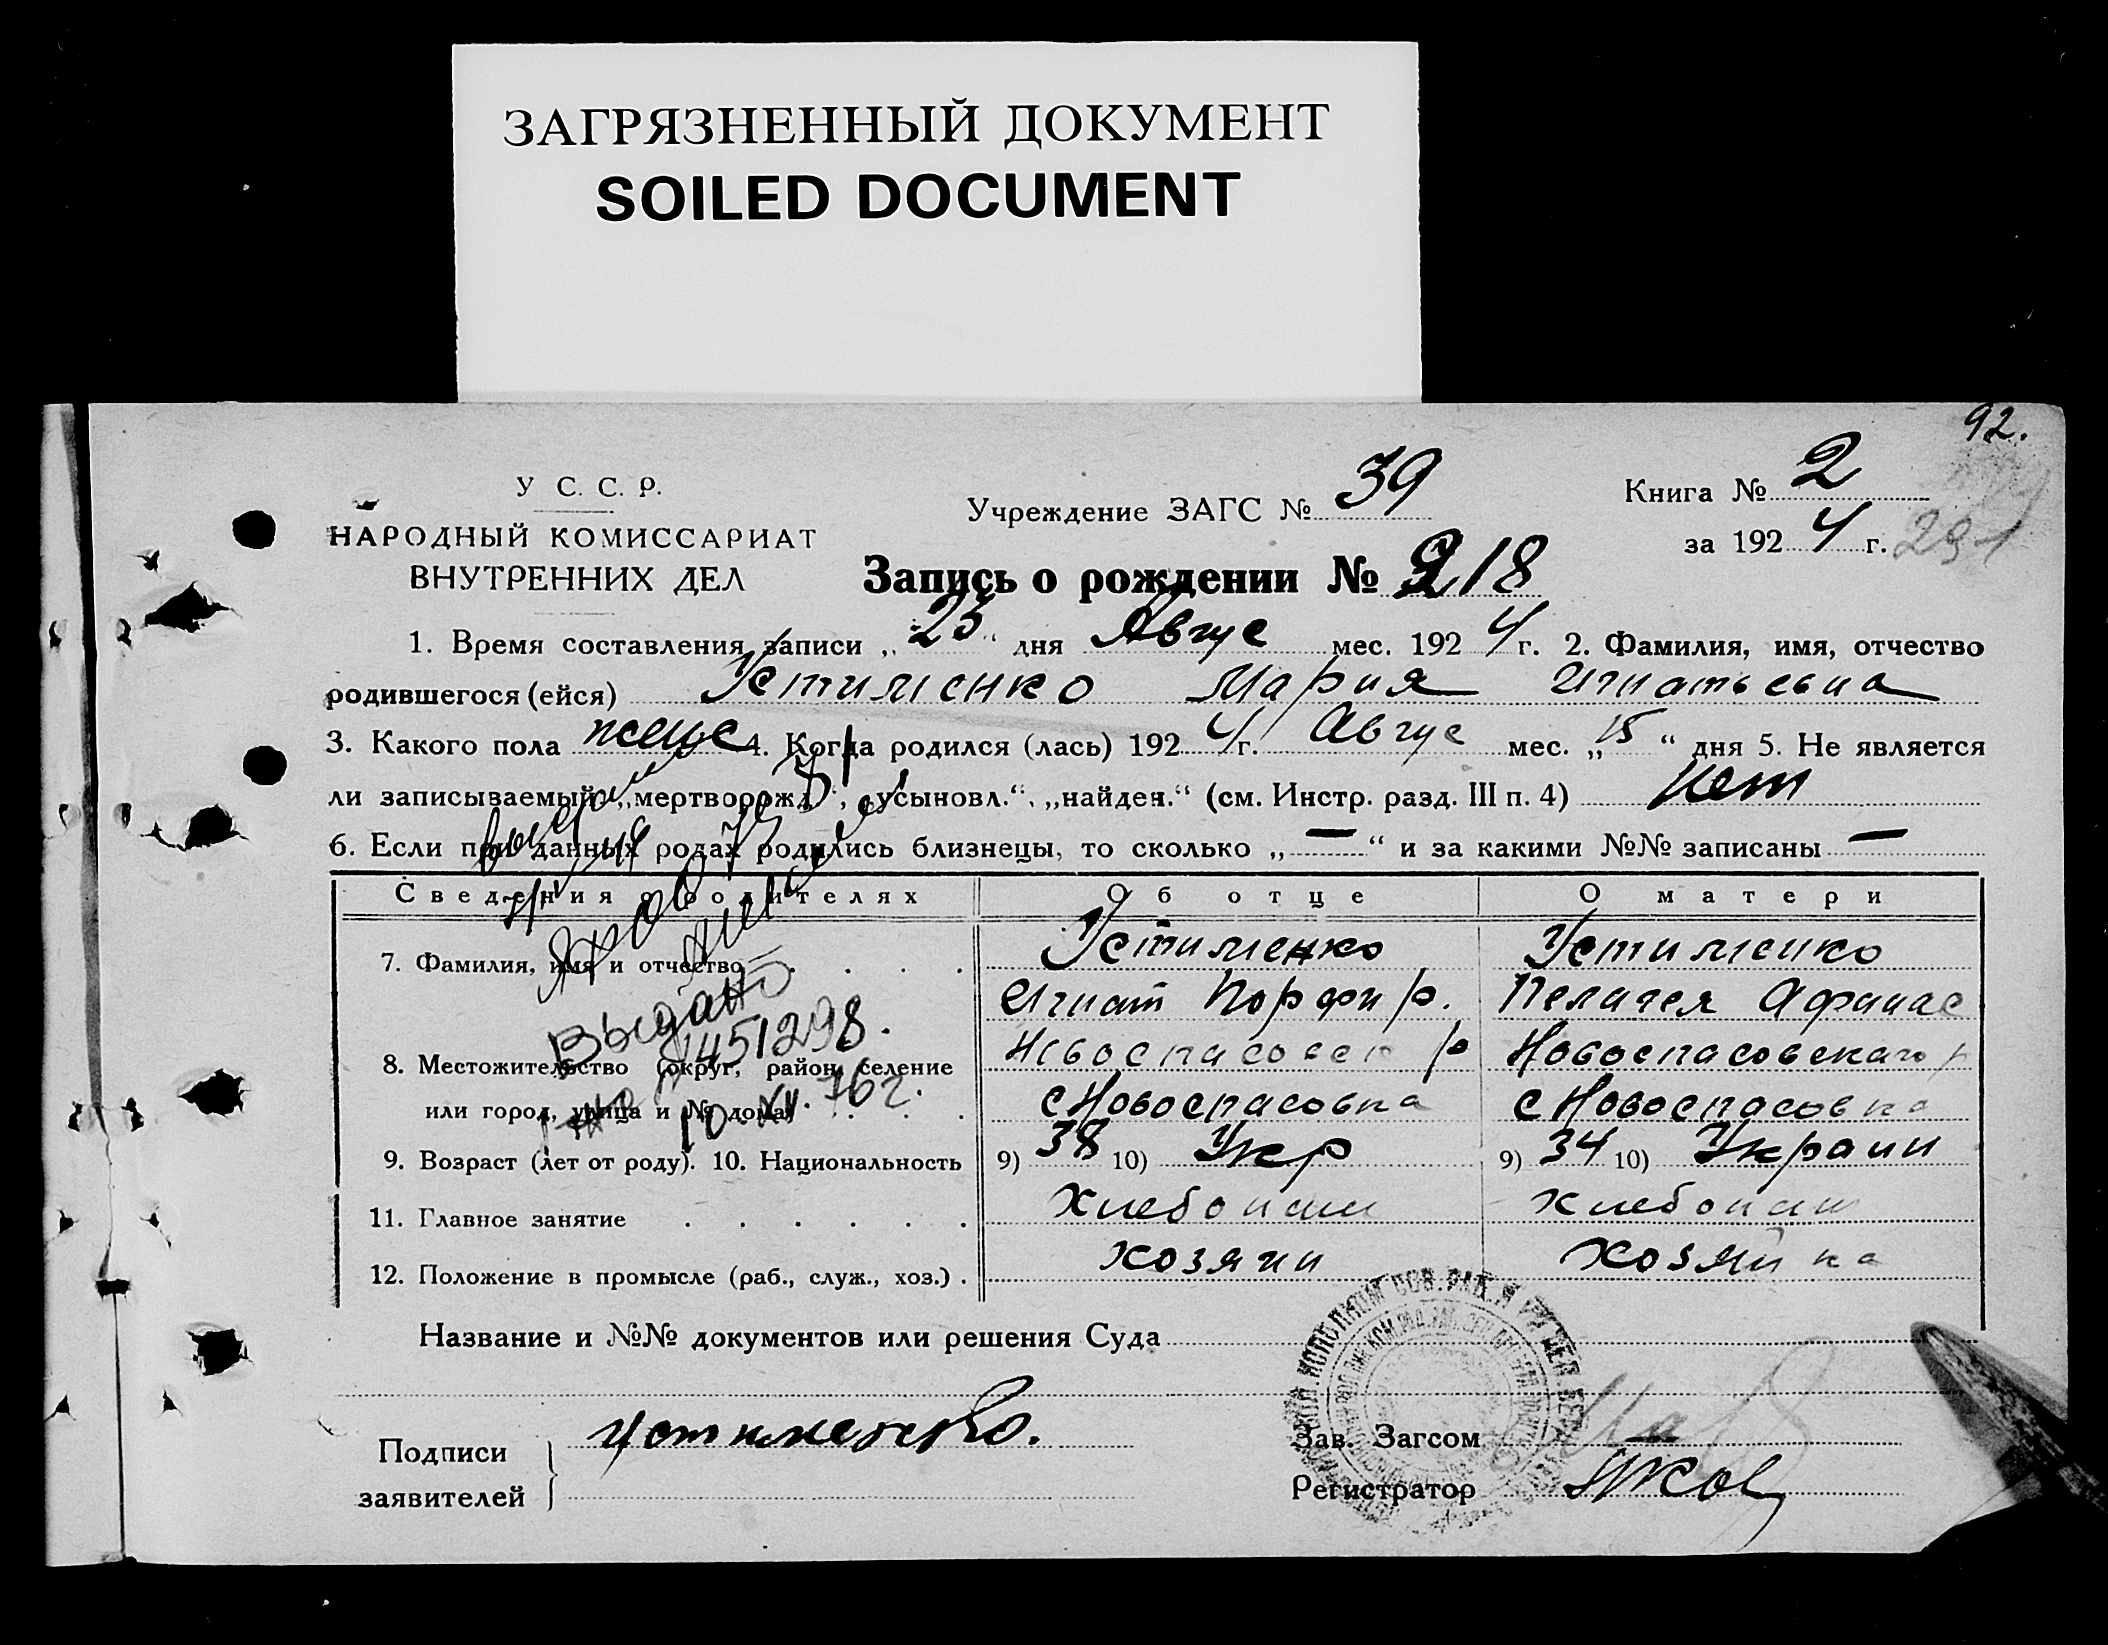 ЗАГРЯЗНЕННЫЙ ДОКУМЕНТ
SOILED DOCUMENT
92.
У С. С. Р.
НАРОДНЫЙ КОМИССАРИАТ
ВНУТРЕННИХ ДЕЛ
Учреждение ЗАГС № 39
Книга № 2
за 1924 г.
Запись о рождении № 218
1. Время составления записи „25“ дня Авгус мес. 1924 г. 2. Фамилия, имя, отчество
родившегося (ейся) Устименко Мария Игнатьевна
3. Какого пола женс 4. Когда родился (лась) 1924 г. Авгус мес. „15“ дня 5. Не является
ли записываемый „мертворожд“, „усыновл.“, „найден.“ (см. Инстр. разд. III п. 4) нет
6. Если при данных родах родились близнецы, то сколько „—“ и за какими №№ записаны —
Сведения о родителях Об отце О матери
7. Фамилия, имя и отчество Устименко Устименко
Игнат Порфир. Пелагея Афанас
8. Местожительство (округ, район, селение Новоспасовск р Новоспасовскаго р
или город, улица и № дома) с Новоспасовка с Новоспасовка
9. Возраст (лет от роду). 10. Национальность 9) 38 10) Укр 9) 34 10) Украин
11. Главное занятие Хлебопаш хлебопаш
12. Положение в промысле (раб., служ., хоз.) хозяин хозяйка
Выдано
451298.
10.XII.76г.
Название и №№ документов или решения Суда
Подписи
заявителей
Устименко.
Зав. Загсом
Регистратор